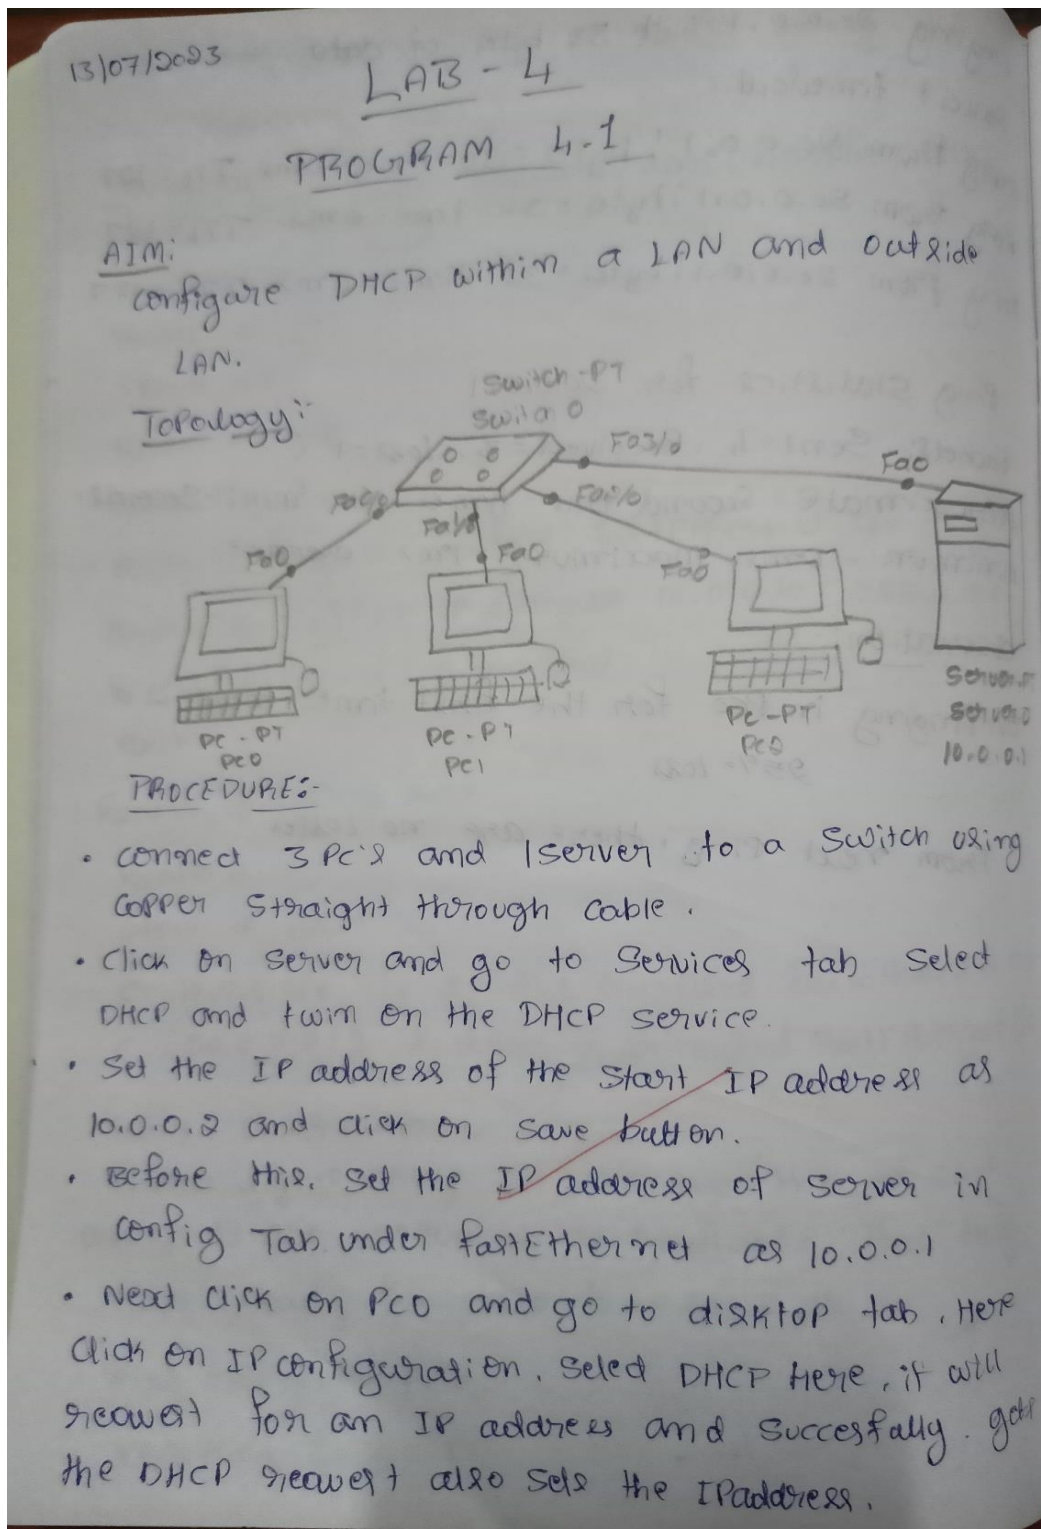 13/07/2023
LAB - 4
PROGRAM 4.1
AIM:
configure DHCP within a LAN and outside
LAN.
Topology:-
Switch-PT
Switch 0
Fa3/0
Fa0
Fa0/0
Fa1/0
Fa0
Fa0
Fa0
Server-PT
Server0
10.0.0.1
PC-PT
PC0
PC-PT
PC1
PC-PT
PC2
PROCEDURE:-
• connect 3 PC's and 1 server to a switch using
copper straight through cable.
• Click on server and go to Services tab select
DHCP and turn on the DHCP service.
• Set the IP address of the start IP address as
10.0.0.2 and click on save button.
• Before this, set the IP address of server in
config Tab under fastEthernet as 10.0.0.1
• Next click on PC0 and go to disktop tab. Here
click on IP configuration. Select DHCP here, it will
request for an IP address and succesfally. gets
the DHCP request also sets the IPaddress.